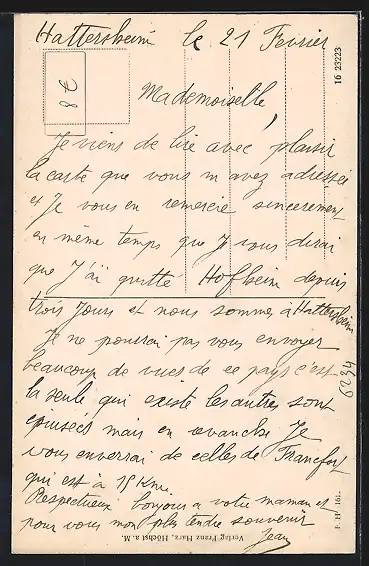 Hattersheim le 21 Fevrier
8 €
16 23223
Mademoiselle,
Je viens de lire avec plaisir
la carte que vous m avez adressée
et Je vous en remercie sincerement
en même temps que Je vous dirai
que J'ai quitté Hofheim depuis
trois Jours et nous sommes à Hattersheim
Je ne pourrai pas vous envoyer
beaucoup de vues de ce pays c'est
la seule qui existe les autres sont
épuisées mais en revanche Je
vous enverrai de celles de Francfort
qui est à 15 Km.
Respectueux bonjour a votre maman et
pour vous mon plus tendre souvenir
Jean
6234
F. H. 161.
Verlag Franz Harz, Höchst a. M.